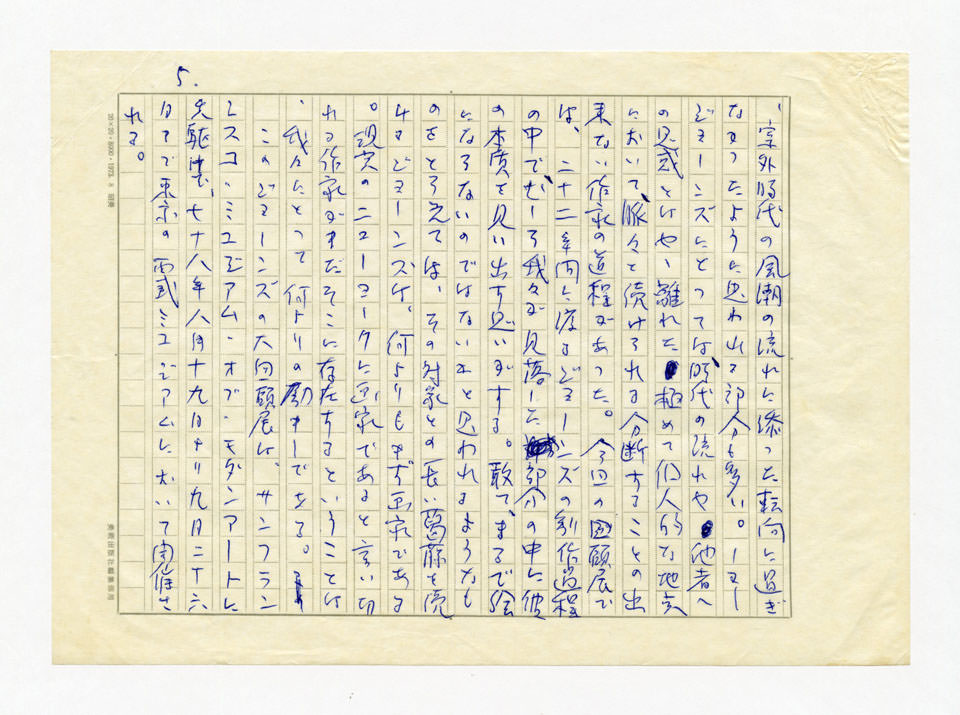 5.
、案外時代の風潮の流れに添った転向に過ぎ
なかったように思われる部分も多い。しかし
ジョーンズにとっては、時代の流れや他者へ
の思惑とはや、離れた極めて個人的な地点
において、脈々と続けられる分断することの出
来ない作家の道程があった。今回の回顧展で
は、二十二年間に渡るジョーンズの創作過程
の中で、むしろ我々が見落した部分の中に彼
の本質を見い出す思いがする。敢て、まるで絵
にならないのではないかと思われるようなも
のをとらえては、その対象との長い葛藤を続
けるジョーンズは、何よりもまず画家である
。現実のニューヨークに画家であると言い切
れる作家がまだそこに存在するということは
、我々にとって何よりの励ましである。
このジョーンズの大回顧展は、サンフラン
シスコ・ミュジアム・オブ・モダンアートに
先駆け、七十八年八月十九日より九月二十六
日まで東京の西武ミュジアムにおいて開催さ
れる。
20×20・8000・1973. 8
美術出版社編集部用